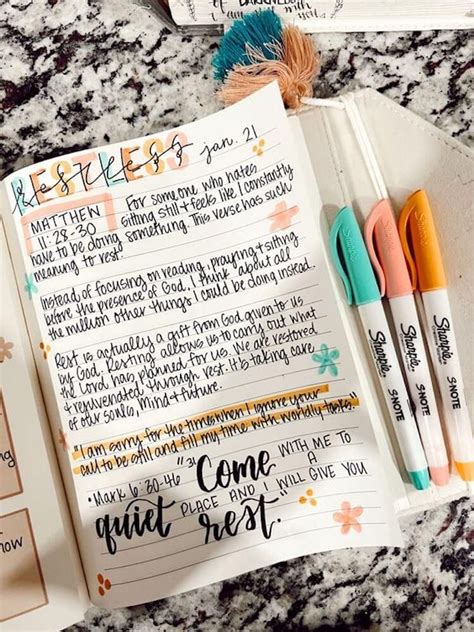 RESTLESS jan. 21
MATTHEW
11:28-30
For someone who hates
sitting still + feels like I constantly
have to be doing something. This verse has such
meaning to rest.
Instead of focusing on reading, praying + sitting
before the presence of God, I think about all
the million other things I could be doing instead.
Rest is actually a gift from God given to us
by God. Resting allows us to carry out what
the Lord has planned for us. We are restored
& rejuvenated through rest. It's taking care
of our souls, mind + future.
"I am sorry for the times when I ignore your
call to be still and fill my time with worldly tasks.
"Mark 6:30-46 "31 Come WITH ME TO
A
quiet PLACE AND I WILL GIVE YOU
rest."
Sharpie
S·NOTE
Sharpie
S·NOTE
Sharpie
S·NOTE
how
with you